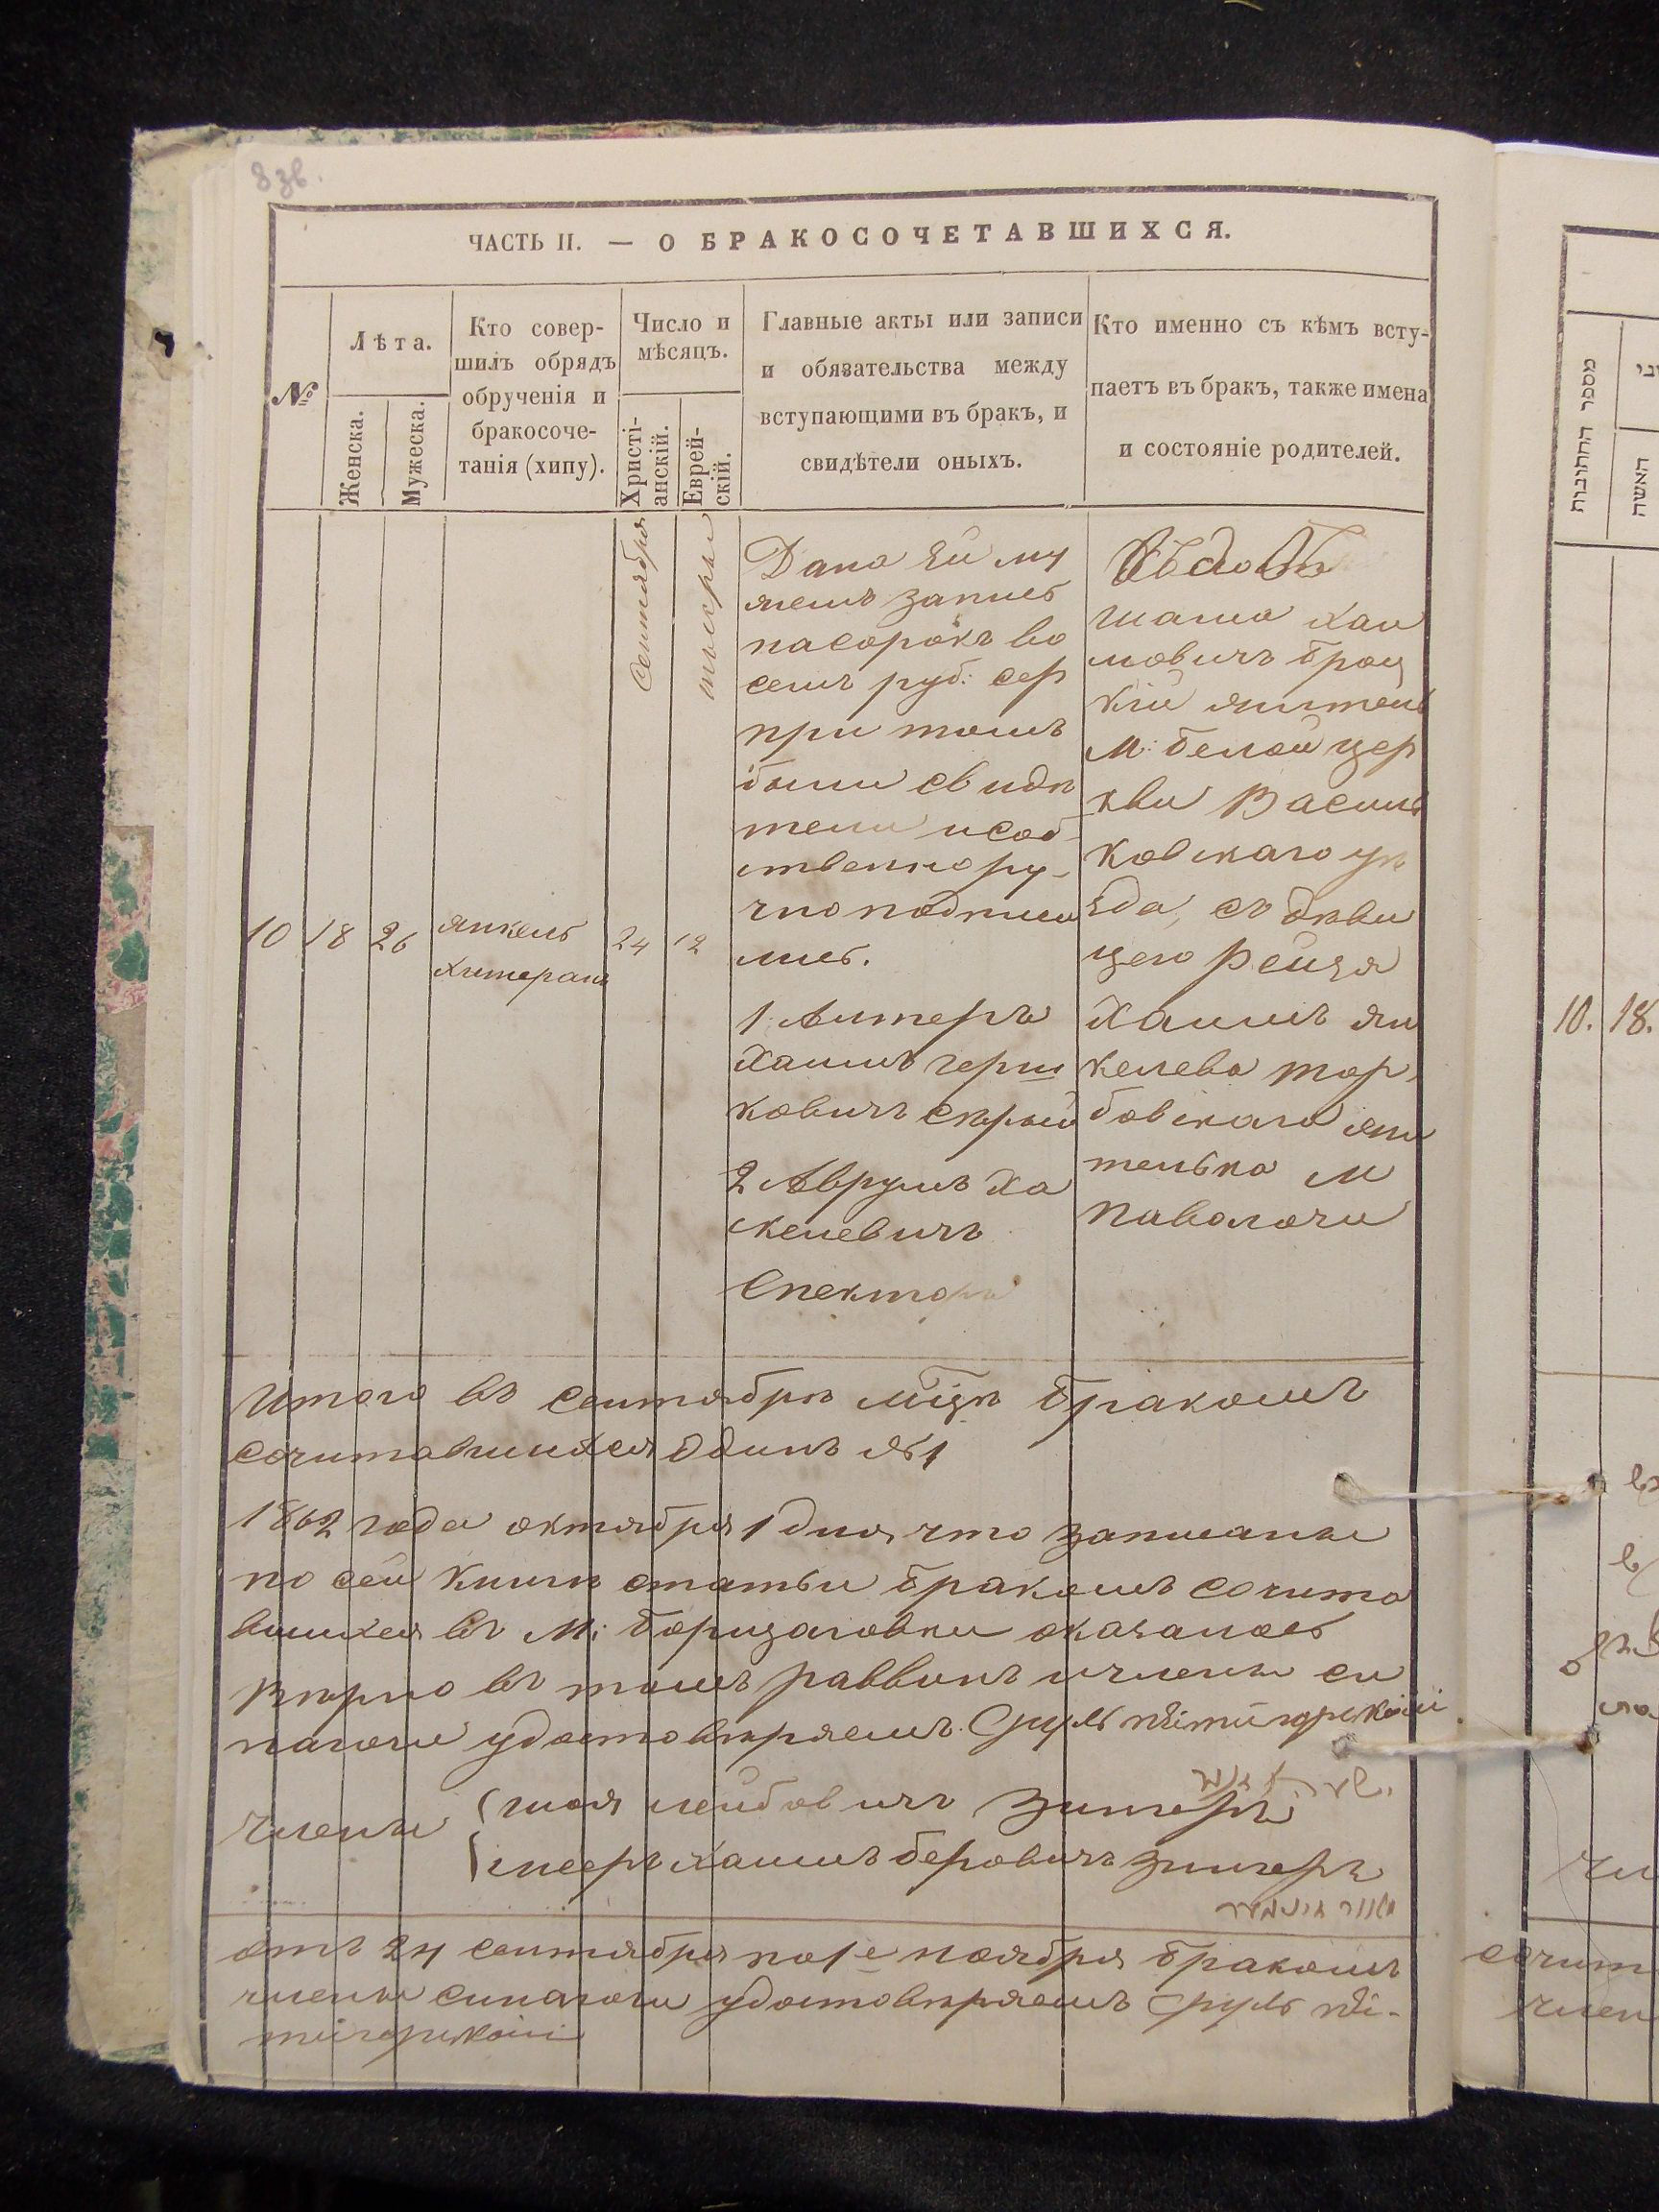 ЧАСТЬ II. — О БРАКОСОЧЕТАВШИХСЯ.
№
Лѣта.
Женска.
Мужеска.
Кто совер-
шилъ обрядъ
обрученія и
бракосоче-
танія (хипу).
Число и
мѣсяцъ.
Христі-
анскій.
Еврей-
скій.
Главные акты или записи
и обязательства между
вступающими въ бракъ, и
свидѣтели оныхъ.
Кто именно съ кѣмъ всту-
паетъ въ бракъ, также имена
и состояніе родителей.
10
18
26
Янкель
Сентября
24
12
Дана ей му
жемъ запись
на сорокъ во
семь руб: сер
при томъ
были свидѣ
тели и соб-
ственнору-
чно подписа
лись.
1 Алтеръ
Хаимъ Герш
ковичъ
2 Аврумъ Ха
скелевичъ
Спекторъ
Вдовъ
Шама Хаи
мовичъ
кій житель
М: Белой Цер
кви Василь
ковскаго уѣ
зда, съ дѣви
цею Рейзя
Хаимъ Ян
келева Тор
бовскаго жи
телька М
Паволочи
Итого въ сентябрѣ мѣцѣ бракомъ
сочитавшихся одинъ № 1
1862 года октября 1 дня что записаны
по сей книгѣ статьи бракомъ сочита
вшихся въ М: Борщаговки оказалось
вѣрно въ томъ раввинъ и члены си
нагоги удостовѣряемъ. Сруль
Члены
Шая Лейбовичъ Зингеръ
Мееръ Хаимъ Беровичъ Зингеръ
отъ 24 сентября по 1е ноября бракомъ
члены синагоги удостовѣряемъ Сруль
מספר החתונות
האשה
10.
18.